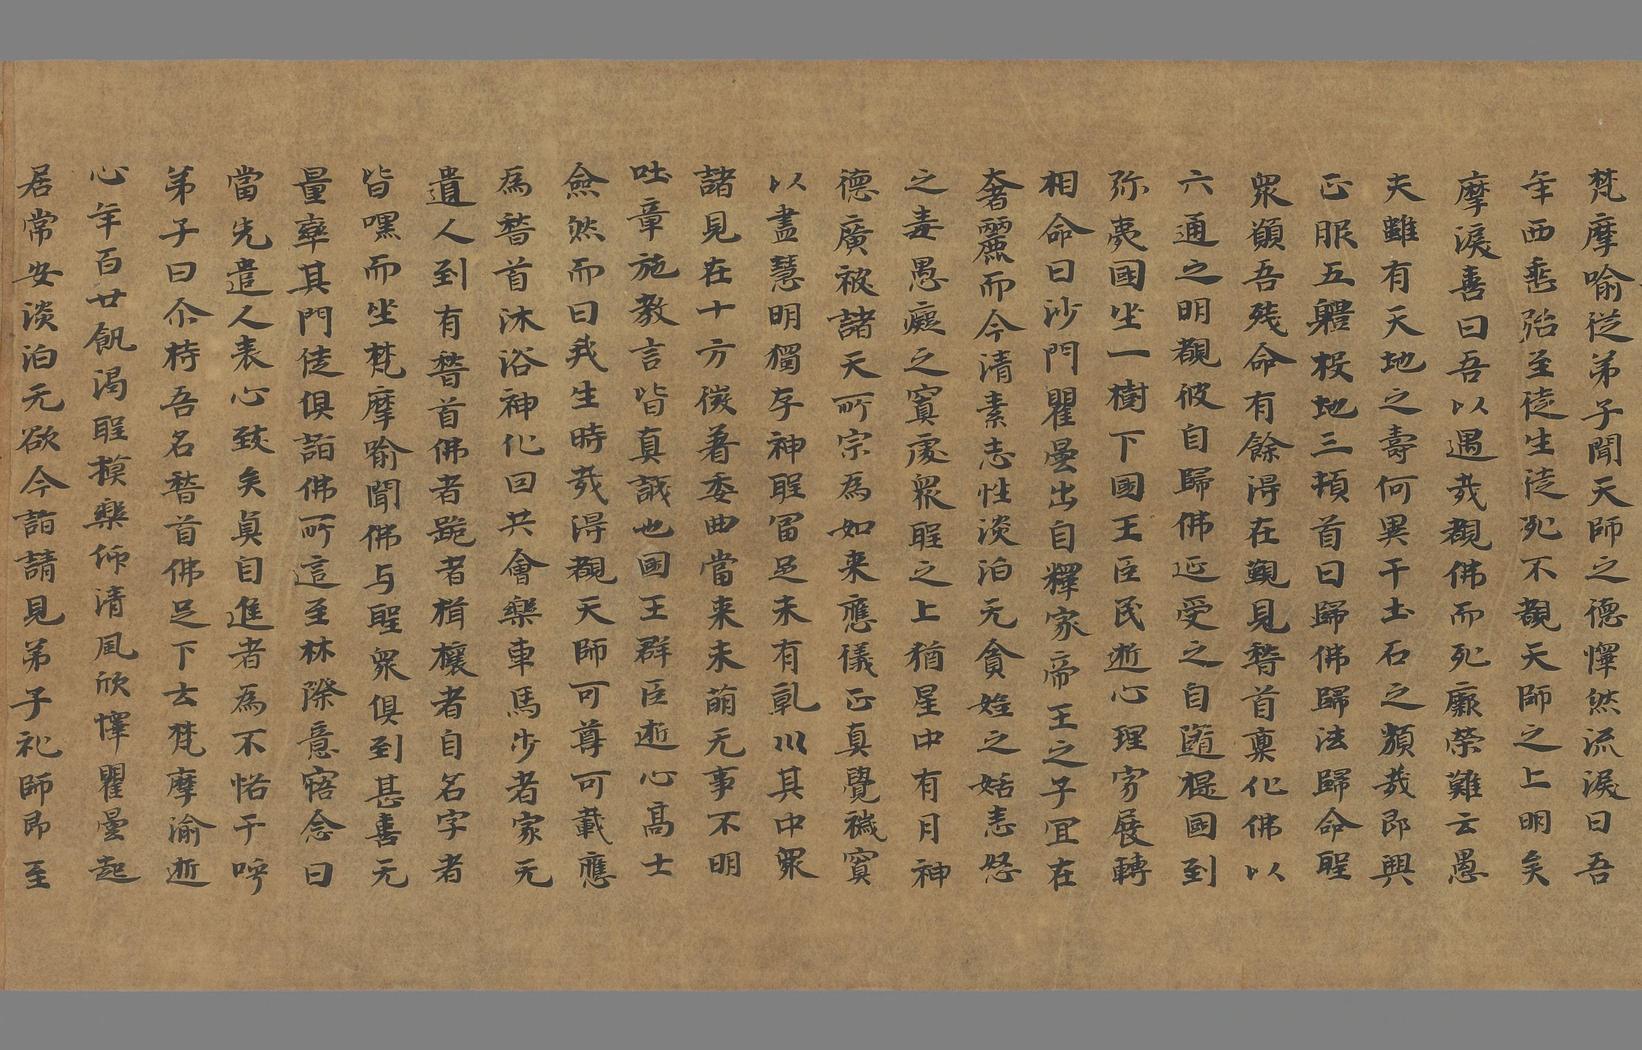 梵摩喻從弟子聞天師之德懌然流淚曰吾
年西垂殆至徒生徒死不覩天師之上明矣
摩淚善曰吾以遇哉覩佛而死厥榮難云愚
夫雖有天地之壽何異干土石之類哉即興
正服五軆投地三頓首曰歸佛歸法歸命聖
衆願吾殘命有餘得在覲見稽首稟化佛以
六通之明覩彼自歸佛延受之自隨禔國到
弥夷國坐一樹下國王臣民逝心理家展轉
相命曰沙門瞿曇出自釋家帝王之子宜在
奢麗而今清素志性淡泊无貪婬之姤恚怒
之毒愚癡之冥處衆聖之上猶星中有月神
德廣被諸天所宗為如来應儀正真覺穢冥
以盡慧明獨存神聖冨足未有亂川其中衆
諸見在十方徽著委曲當来未萌无事不明
吐章施教言皆真誠也國王群臣逝心高士
僉然而曰我生時哉得覩天師可尊可戴應
為稽首沐浴神化回共會乘車馬步者家无
遺人到有稽首佛者跪者揖欀者自名字者
皆嘿而坐梵摩喻聞佛与聖衆俱到甚喜无
量率其門徒俱詣佛所這至林際意寤念曰
當先遣人表心致矣貞自進者為不恪干呼
弟子曰尒持吾名稽首佛足下去梵摩渝逝
心年百廿飢渴聖模樂師清風欣懌瞿曇起
居常安淡泊无欲今詣請見弟子礼師即至